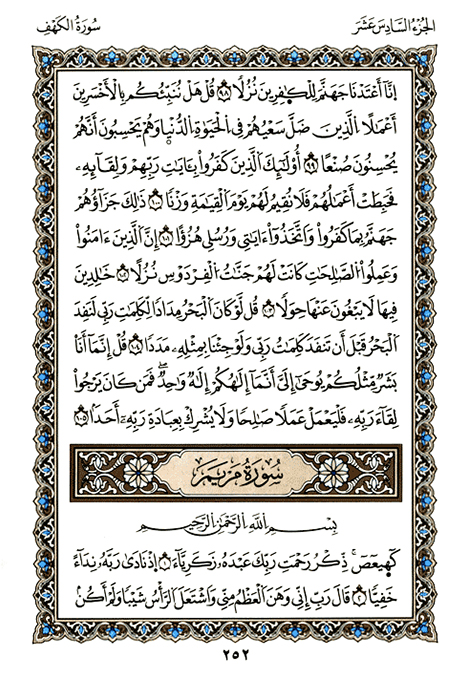 الجُزْءُ السَّادِسَ عَشَرَ
سُورَةُ الكَهْفِ
إِنَّآ أَعْتَدْنَا جَهَنَّمَ لِلْكَٰفِرِينَ نُزُلًا ٩٨ قُلْ هَلْ نُنَبِّئُكُم بِالْأَخْسَرِينَ
أَعْمَٰلًا الَّذِينَ ضَلَّ سَعْيُهُمْ فِي الْحَيَوٰةِ الدُّنْيَا وَهُمْ يَحْسِبُونَ أَنَّهُمْ
يُحْسِنُونَ صُنْعًا ٩٩ أُوْلَٰٓئِكَ الَّذِينَ كَفَرُواْ بِـَٔايَٰتِ رَبِّهِمْ وَلِقَآئِهِۦ
فَحَبِطَتْ أَعْمَٰلُهُمْ فَلَا نُقِيمُ لَهُمْ يَوْمَ الْقِيَٰمَةِ وَزْنًا ١٠٠ ذَٰلِكَ جَزَآؤُهُمْ
جَهَنَّمُ بِمَا كَفَرُواْ وَاتَّخَذُوٓاْ ءَايَٰتِي وَرُسُلِي هُزُؤًا ١٠١ إِنَّ الَّذِينَ ءَامَنُواْ
وَعَمِلُواْ الصَّٰلِحَٰتِ كَانَتْ لَهُمْ جَنَّٰتُ الْفِرْدَوْسِ نُزُلًا ١٠٢ خَٰلِدِينَ
فِيهَا لَا يَبْغُونَ عَنْهَا حِوَلًا ١٠٣ قُل لَّوْ كَانَ الْبَحْرُ مِدَادًا لِّكَلِمَٰتِ رَبِّي لَنَفِدَ
الْبَحْرُ قَبْلَ أَن تَنفَدَ كَلِمَٰتُ رَبِّي وَلَوْ جِئْنَا بِمِثْلِهِۦ مَدَدًا ١٠٤ قُلْ إِنَّمَآ أَنَا۠
بَشَرٌ مِّثْلُكُمْ يُوحَىٰٓ إِلَيَّ أَنَّمَآ إِلَٰهُكُمْ إِلَٰهٌ وَٰحِدٌ فَمَن كَانَ يَرْجُواْ
لِقَآءَ رَبِّهِۦ فَلْيَعْمَلْ عَمَلًا صَٰلِحًا وَلَا يُشْرِكْ بِعِبَادَةِ رَبِّهِۦٓ أَحَدًا ١٠٥
سُورَةُ مَرْيَمَ
بِسْمِ اللَّهِ الرَّحْمَٰنِ الرَّحِيمِ
كٓهيعٓصٓ ذِكْرُ رَحْمَتِ رَبِّكَ عَبْدَهُۥ زَكَرِيَّآءَ ١ إِذْ نَادَىٰ رَبَّهُۥ نِدَآءً
خَفِيًّا ٢ قَالَ رَبِّ إِنِّي وَهَنَ الْعَظْمُ مِنِّي وَاشْتَعَلَ الرَّأْسُ شَيْبًا وَلَمْ أَكُنۢ
٢٥٢